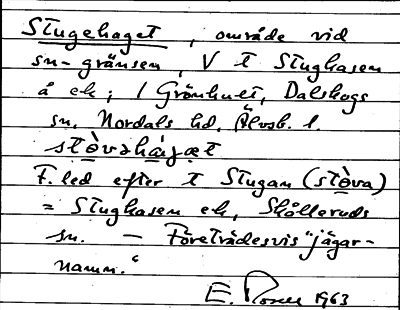 Stugehaget, område vid
sn-gränsen, V t Stughasen
å ek; / Grönhult, Dalskogs
sn, Nordals hd, Älvsb. l.
stòvəhá̱gət
F. led efter t Stugan (stòva)
= Stughasen ek, Skålleruds
sn. — Företrädesvis "jägar-
namn."
E. 1963